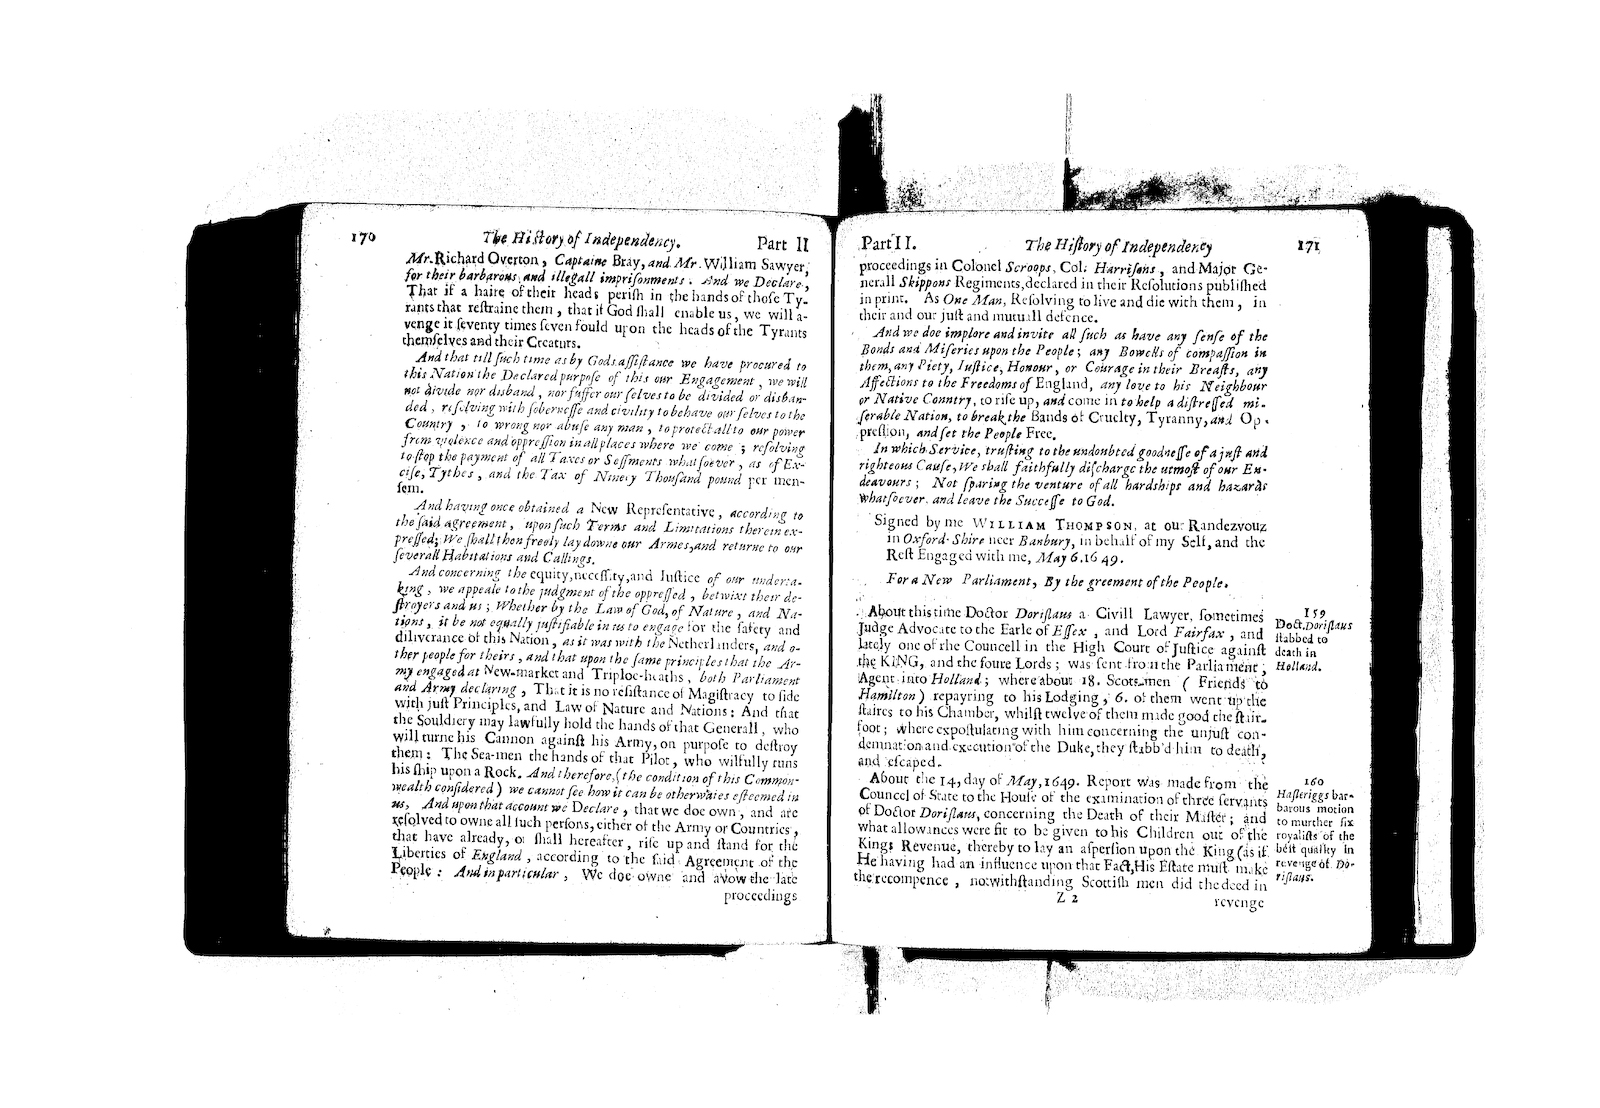 170 The Hiſtory of Independency. Part II
Mr. Richard Overton, Captaine Bray, and Mr. William Sawyer,
for their barbarous and illegall impriſonments. And we Declare,
That if a haire of their heads periſh in the hands of thoſe Ty-
rants that reſtraine them, that if God ſhall enable us, we will a-
venge it ſeventy times ſeven fould upon the heads of the Tyrants
themſelves and their Creaturs.
And that till ſuch time as by Gods aſſiſtance we have procured to
this Nation the Declared purpoſe of this our Engagement, we will
not divide nor disband, nor ſuffer our ſelves to be divided or disban-
ded, reſolving with ſoberneſſe and civility to behave our ſelves to the
Country, to wrong nor abuſe any man, to protect all to our power
from violence and oppreſſion in all places where we come; reſolving
to ſtop the payment of all Taxes or Seſſments whatſoever, as of Ex-
ciſe, Tythes, and the Tax of Ninety Thouſand pound per men-
ſem.
And having once obtained a New Repreſentative, according to
the ſaid agreement, upon ſuch Terms and Limitations therein ex-
preſſed; We ſhall then freely lay downe our Armes, and returne to our
ſeverall Habitations and Callings.
And concerning the equity, neceſſity, and Juſtice of our underta-
king, we appeale to the judgment of the oppreſſed, betwixt their de-
ſtroyers and us; Whether by the Law of God, of Nature, and Na-
tions, it be not equally juſtifiable in us to engage for the ſafety and
diliverance of this Nation, as it was with the Netherlanders, and o-
ther people for theirs, and that upon the ſame principles that the Ar-
my engaged at New-market and Triploe-heaths, both Parliament
and Army declaring, That it is no reſiſtance of Magiſtracy to ſide
with juſt Principles, and Law of Nature and Nations: And that
the Souldiery may lawfully hold the hands of that Generall, who
will turne his Cannon againſt his Army, on purpoſe to deſtroy
them: The Sea-men the hands of that Pilot, who wilfully runs
his ſhip upon a Rock. And therefore, (the condition of this Common-
wealth conſidered) we cannot ſee how it can be otherwaies eſteemed in
us, And upon that account we Declare, that we doe own, and are
reſolved to owne all ſuch perſons, either of the Army or Countries,
that have already, or ſhall hereafter, riſe up and ſtand for the
Liberties of England, according to the ſaid Agreement of the
People: And in particular, We doe owne and avow the late
proceedings
Part II. The Hiſtory of Independency 171
proceedings in Colonel Scroops, Col: Harriſons, and Major Ge-
nerall Skippons Regiments, declared in their Reſolutions publiſhed
in print. As One Man, Reſolving to live and die with them, in
their and our juſt and mutuall defence.
And we doe implore and invite all ſuch as have any ſenſe of the
Bonds and Miſeries upon the People; any Bowells of compaſſion in
them, any Piety, Iuſtice, Honour, or Courage in their Breaſts, any
Affections to the Freedoms of England, any love to his Neighbour
or Native Country, to riſe up, and come in to help a diſtreſſed mi-
ſerable Nation, to break the Bands of Cruelty, Tyranny, and Op-
preſſion, and ſet the People Free.
In which Service, truſting to the undoubted goodneſſe of a juſt and
righteous Cauſe, We ſhall faithfully diſcharge the utmoſt of our En-
deavours; Not ſparing the venture of all hardſhips and hazards
whatſoever. and leave the Succeſſe to God.
Signed by me WILLIAM THOMPSON, at our Randezvouz
in Oxford-Shire neer Banbury, in behalf of my Self, and the
Reſt Engaged with me, May 6. 1649.
For a New Parliament, By the greement of the People.
About this time Doctor Doriſlaus a Civill Lawyer, ſometimes
Judge Advocate to the Earle of Eſſex, and Lord Fairfax, and
lately one of the Councell in the High Court of Juſtice againſt
the KING, and the foure Lords; was ſent from the Parliament,
Agent into Holland; where about 18. Scots-men (Friends to
Hamilton) repayring to his Lodging, 6. of them went up the
ſtaires to his Chamber, whilſt twelve of them made good the ſtair-
foot; where expoſtulating with him concerning the unjuſt con-
demnation and execution of the Duke, they ſtabb'd him to death,
and eſcaped.
159
Doct. Doriſlaus
ſtabbed to
death in
Holland.
About the 14, day of May, 1649. Report was made from the
Councel of State to the Houſe of the examination of three ſervants
of Doctor Doriſlaus, concerning the Death of their Maſter; and
what allowances were fit to be given to his Children out of the
Kings Revenue, thereby to lay an aſperſion upon the King (as if
He having had an influence upon that Fact, His Eſtate muſt make
the recompence, notwithſtanding Scottiſh men did the deed in
160
Haſleriggs bar-
barous motion
to murther ſix
royaliſts of the
beſt quality in
revenge of Do-
riſlaus.
Z 2 revenge